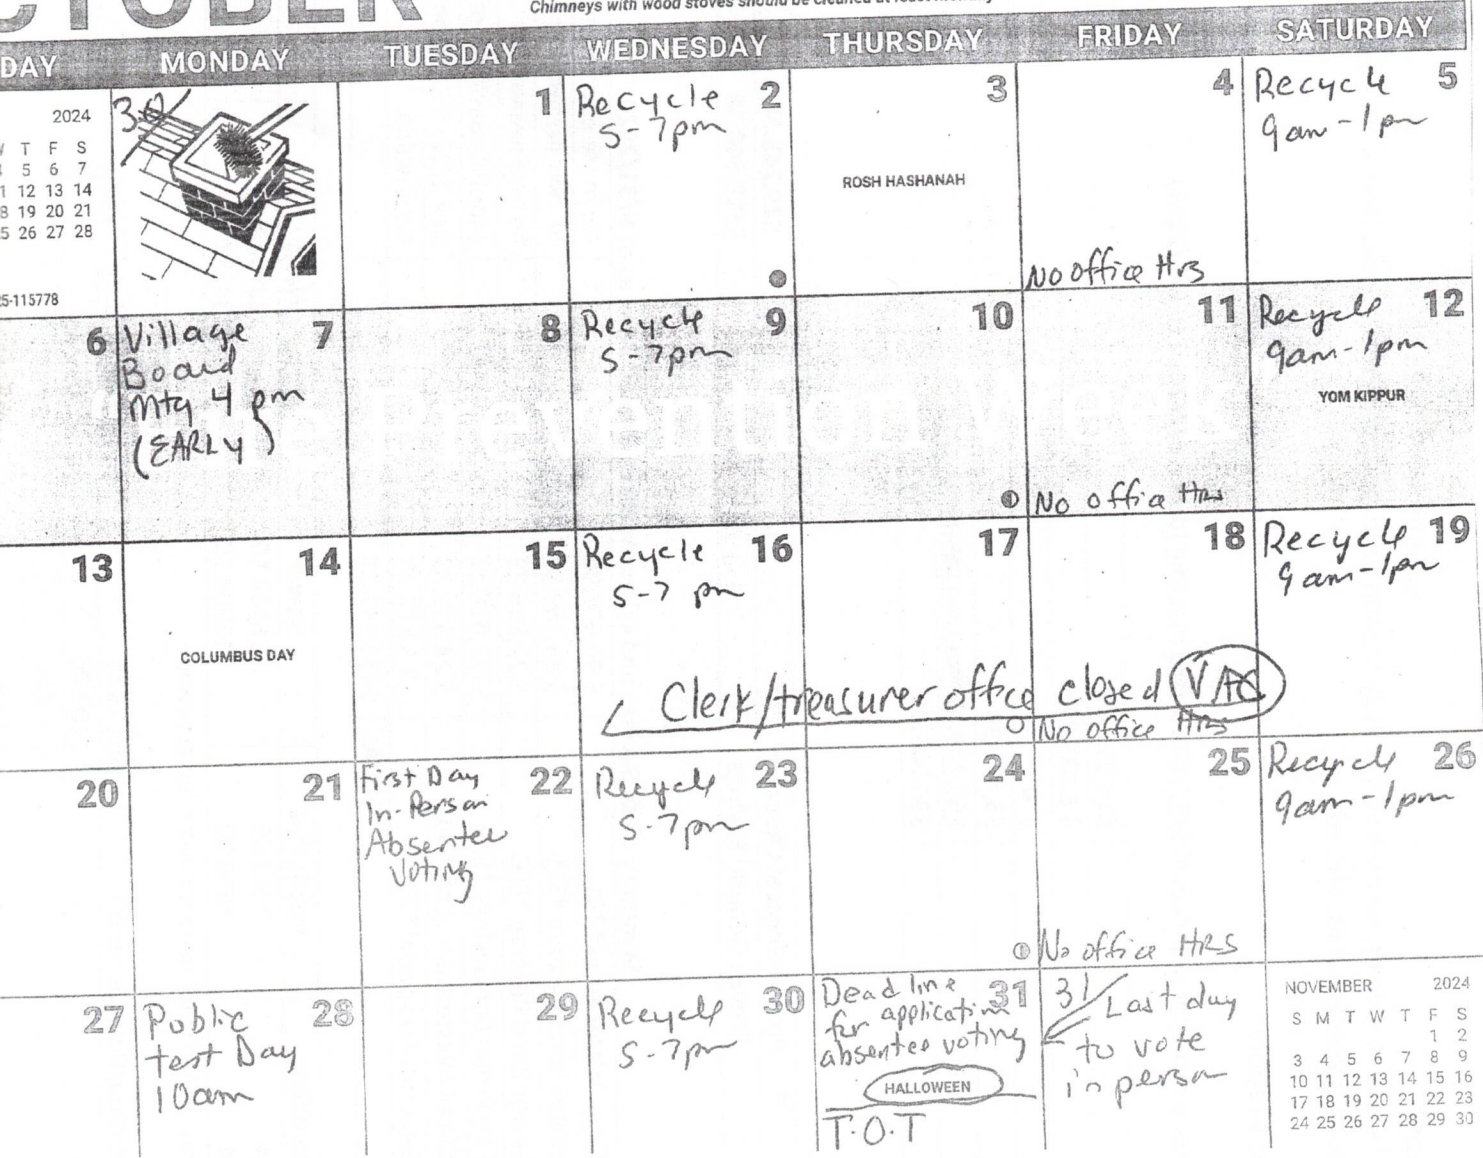 CTOBER
Chimneys with wood stoves should be cleaned at least monthly
DAY MONDAY TUESDAY WEDNESDAY THURSDAY FRIDAY SATURDAY
2024
T F S
5 6 7
12 13 14
19 20 21
26 27 28
5-115778
30
1
2
Recycle
5-7pm
3
ROSH HASHANAH
4
No office Hrs
5
Recycle
9am-1pm
Prevention Week
6
7
Village
Board
Mtg 4 pm
(EARLY)
8
9
Recycle
5-7pm
10
11
No office Hrs
12
Recycle
9am-1pm
YOM KIPPUR
13
14
COLUMBUS DAY
15
16
Recycle
5-7 pm
17
18
19
Recycle
9am-1pm
Clerk/treasurer office closed VAC
No office HRS
20
21
22
First Day
In-Person
Absentee
Voting
23
Recycle
5-7pm
24
25
No office HRS
26
Recycle
9am-1pm
27
28
Public
test Day
10am
29
30
Recycle
5-7pm
31
Deadline
application
for
absentee voting
HALLOWEEN
T.O.T
31
Last day
to vote
in person
NOVEMBER 2024
S M T W T F S
1 2
3 4 5 6 7 8 9
10 11 12 13 14 15 16
17 18 19 20 21 22 23
24 25 26 27 28 29 30